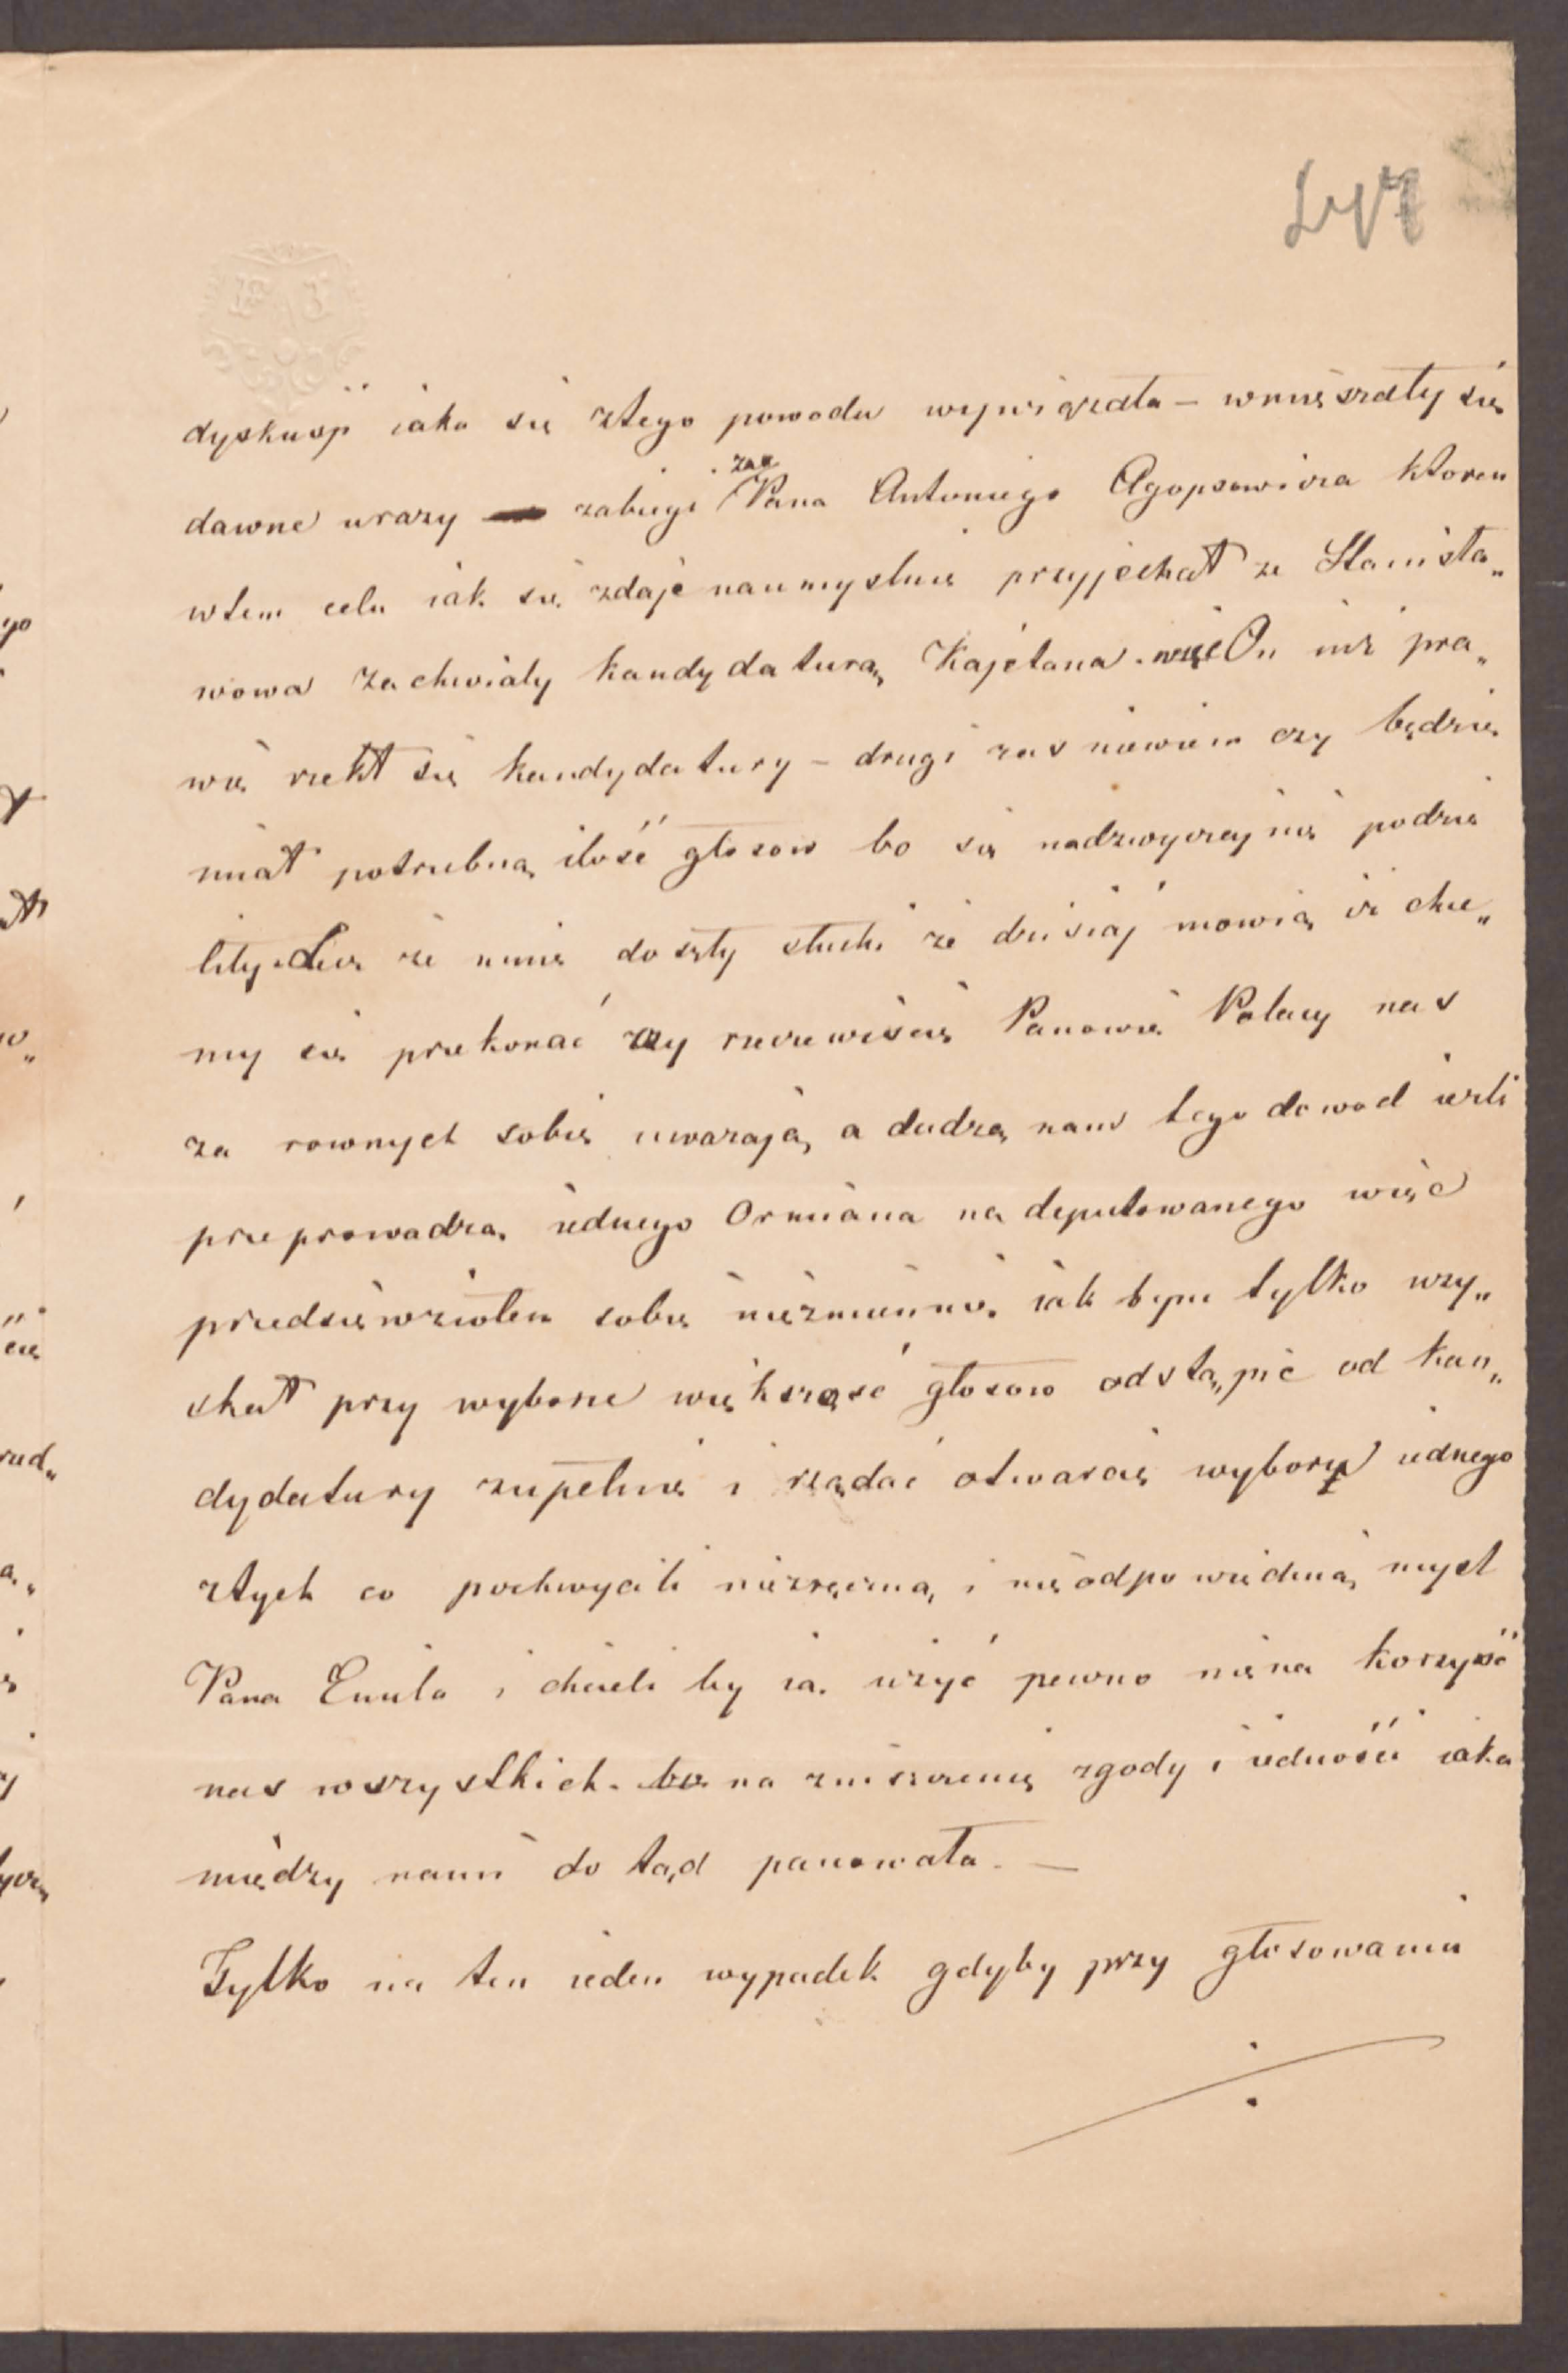 dyskusji iaka się ztego powodu wywiązała – wmięszały się
dawne urazy zabiegi zaś Pana Antoniego Agopsowicza ktoren
wtem celu iak się zdaje naumyslnie przyjechał ze Stanisła„
wowa zachwiały kandydaturą Kajetana. więc On iuż pra„
wie rzekł się kandydatury – drugi zas niewiem czy będzie
miał potrzebną ilość głosow bo się nadzwyczajnie podzie
liły. Lecz że mnie doszły słuchi że dzisiaj mowią iż chce„
my się przekonać czy rzeczewiscie Panowie Polacy nas
za rownych sobie uwazają, a dadzą nam tego dowod iezli
przeprowadzą iednego Ormiana na deputowanego więc
przedsiewziołem sobie niezmiennie iak bym tylko uzy„
skał przy wyborze większość głosow odstąpić od kan„
dydatury zupełnie i rządać otwarcie wyboru iednego
ztych co pochwycili niezręczną i nieodpowiednią mysl
Pana Emila i chcieli by ią użyć pewno niena korzyść
nas wszystkich. na zniszczenie zgody i iedności iaka
między nami do tąd panowała. —
Tylko na ten ieden wypadek gdyby przy głosowaniu